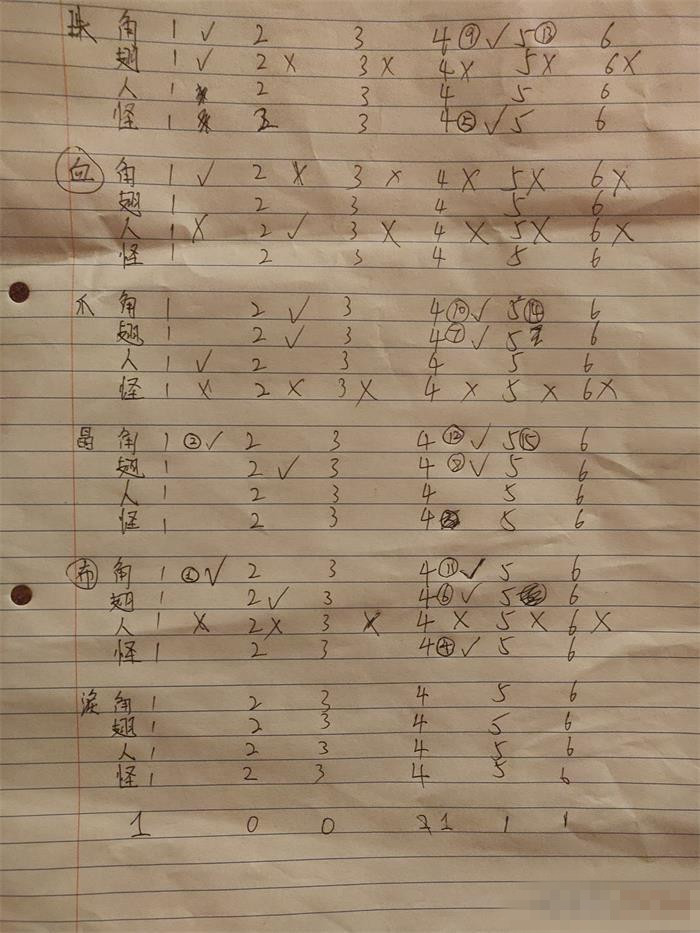 珠 角 1 ✓ 2 3 4 ⑨ ✓ 5 ⑬ 6
翅 1 ✓ 2 X 3 X 4 X 5 X 6 X
人 1 2 3 4 5 6
怪 1 2 3 4 ⑤ ✓ 5 6
血 角 1 ✓ 2 X 3 X 4 X 5 X 6 X
翅 1 2 3 4 5 6
人 1 X 2 ✓ 3 X 4 X 5 X 6 X
怪 1 2 3 4 5 6
爪 角 1 2 ✓ 3 4 ⑩ ✓ 5 ⑭ 6
翅 1 2 ✓ 3 4 ⑦ ✓ 5 6
人 1 ✓ 2 3 4 5 6
怪 1 X 2 X 3 X 4 X 5 X 6 X
晶 角 1 ② ✓ 2 3 4 ⑫ ✓ 5 ⑮ 6
翅 1 2 ✓ 3 4 ⑧ ✓ 5 6
人 1 2 3 4 5 6
怪 1 2 3 4 5 6
布 角 1 ① ✓ 2 3 4 ⑪ ✓ 5 6
翅 1 2 ✓ 3 4 ⑥ ✓ 5 6
人 1 X 2 X 3 X 4 X 5 X 6 X
怪 1 2 3 4 ④ ✓ 5 6
泪 角 1 2 3 4 5 6
翅 1 2 3 4 5 6
人 1 2 3 4 5 6
怪 1 2 3 4 5 6
1 0 0 1 1 1